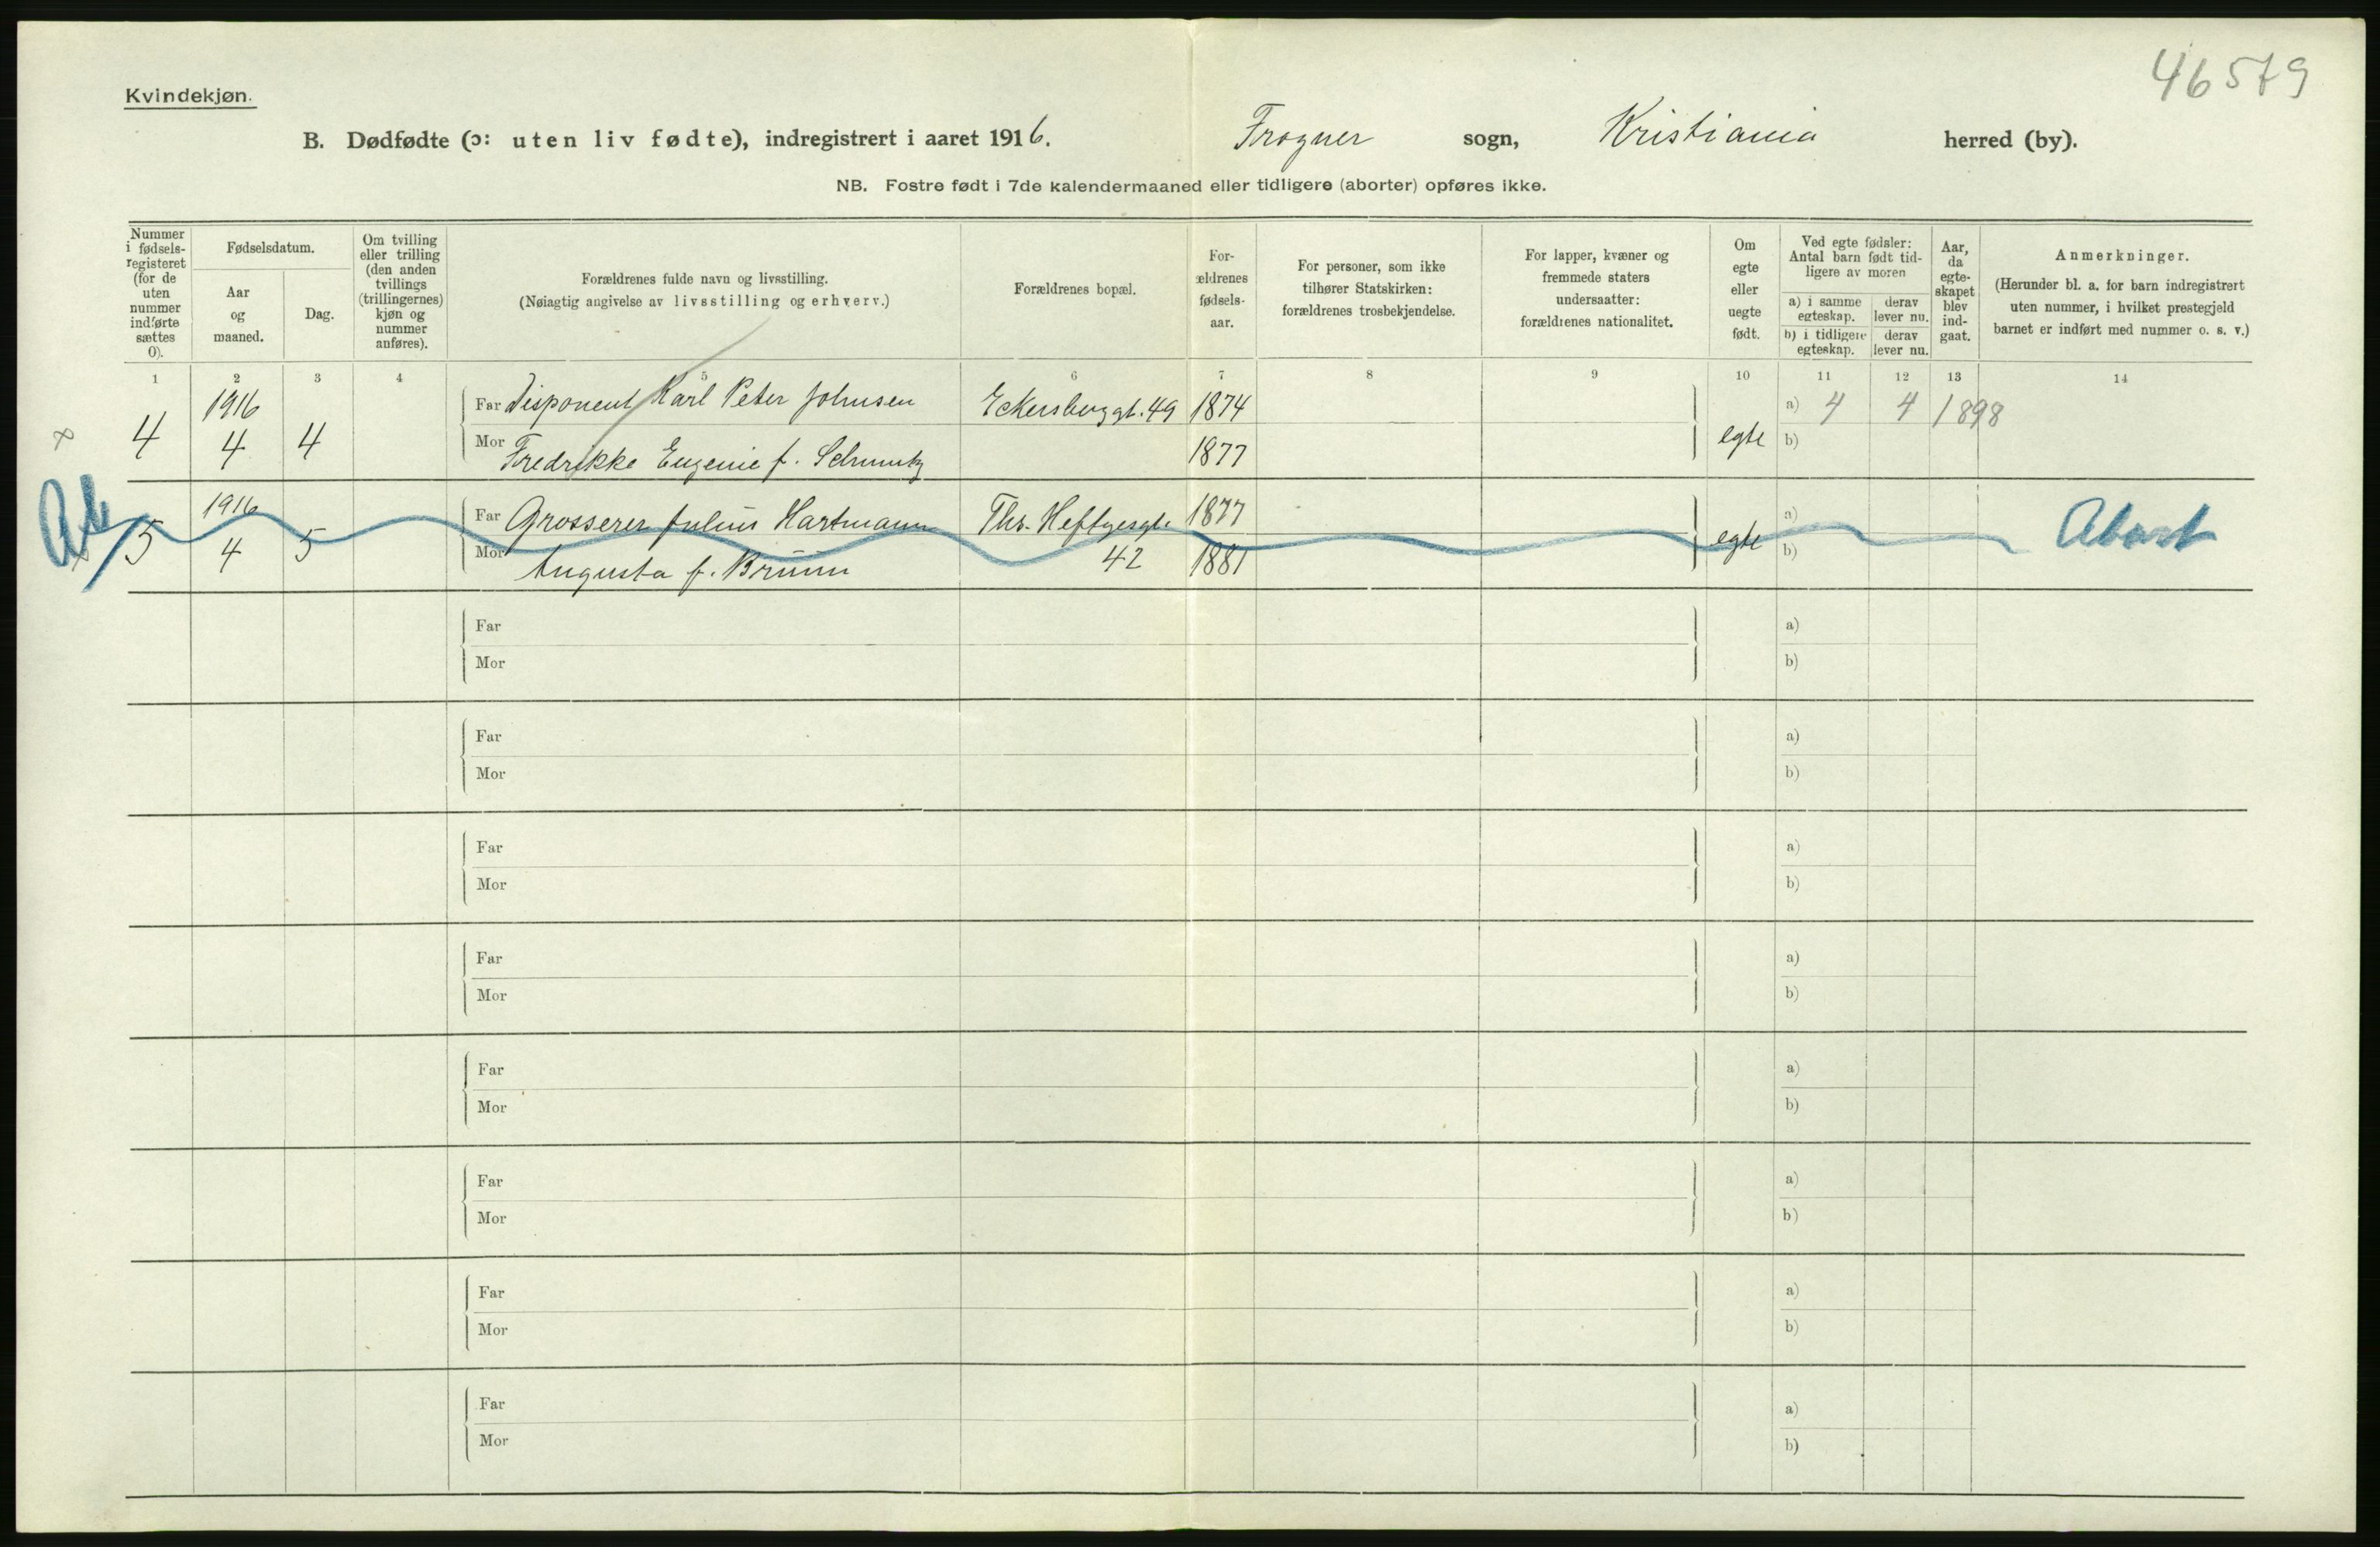 46579
Kvindekjøn.
B. Dødfødte (ɔ: uten liv fødte), indregistrert i aaret 1916. Frogner sogn, Kristiania herred (by).
NB. Fostre født i 7de kalendermaaned eller tidligere (aborter) opføres ikke.
Nummer i fødsels-registeret (for de uten nummer indførte sættes 0).
Fødselsdatum.
Aar og maaned.
Dag.
Om tvilling eller trilling (den anden tvillings (trillingernes) kjøn og nummer anføres).
Forældrenes fulde navn og livsstilling.
(Nøiagtig angivelse av livsstilling og erhverv.)
Forældrenes bopæl.
For-ældrenes fødsels-aar.
For personer, som ikke tilhører Statskirken: forældrenes trosbekjendelse.
For lapper, kvæner og fremmede staters undersaatter: forældrenes nationalitet.
Om egte eller uegte født.
Ved egte fødsler: Antal barn født tid-ligere av moren
a) i samme egteskap. derav lever nu.
b) i tidligere egteskap. derav lever nu.
Aar, da egte-skapet blev ind-gaat.
Anmerkninger.
(Herunder bl. a. for barn indregistrert uten nummer, i hvilket prestegjeld barnet er indført med nummer o. s. v.)
1 2 3 4 5 6 7 8 9 10 11 12 13 14
1916 Far Disponent Karl Peter Johnsen Eckersberggt. 49 1874 a) 4 4 1898
x 4 4 4 Mor Fredrikke Eugenie f. 1877 egte b)
Ab 1916 Far Grosserer Julius Hartmann Ths. Heftyesgt. 1877 a) Abort
x 5 4 5 Mor Augusta f. Brunn 42 1881 egte b)
Far a)
Mor b)
Far a)
Mor b)
Far a)
Mor b)
Far a)
Mor b)
Far a)
Mor b)
Far a)
Mor b)
Far a)
Mor b)
Far a)
Mor b)